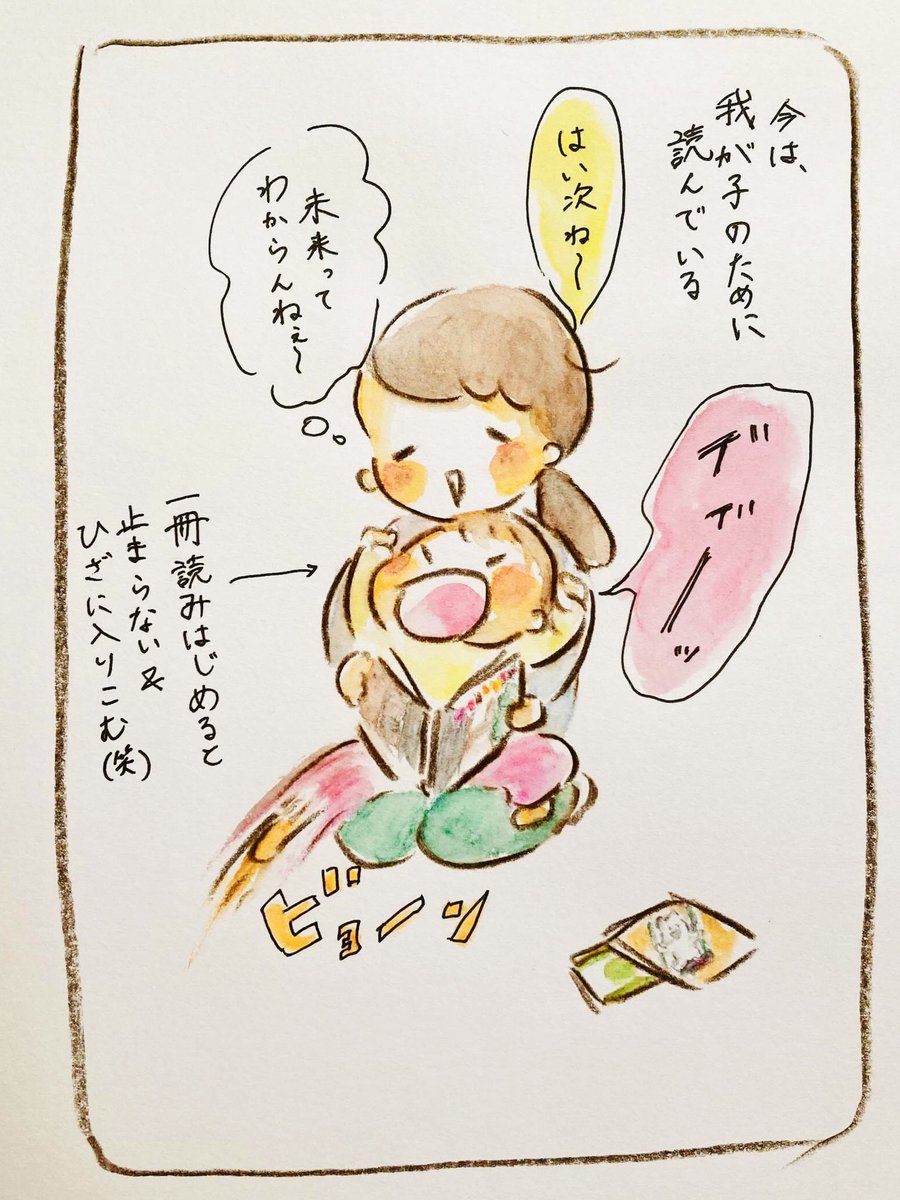 今は、
我が子のために
読んでいる
はい次ね〜
未来って
わからんねぇ〜
デデーッ
一冊読みはじめると
止まらない&
ひざに入りこむ(笑)
ビョーン